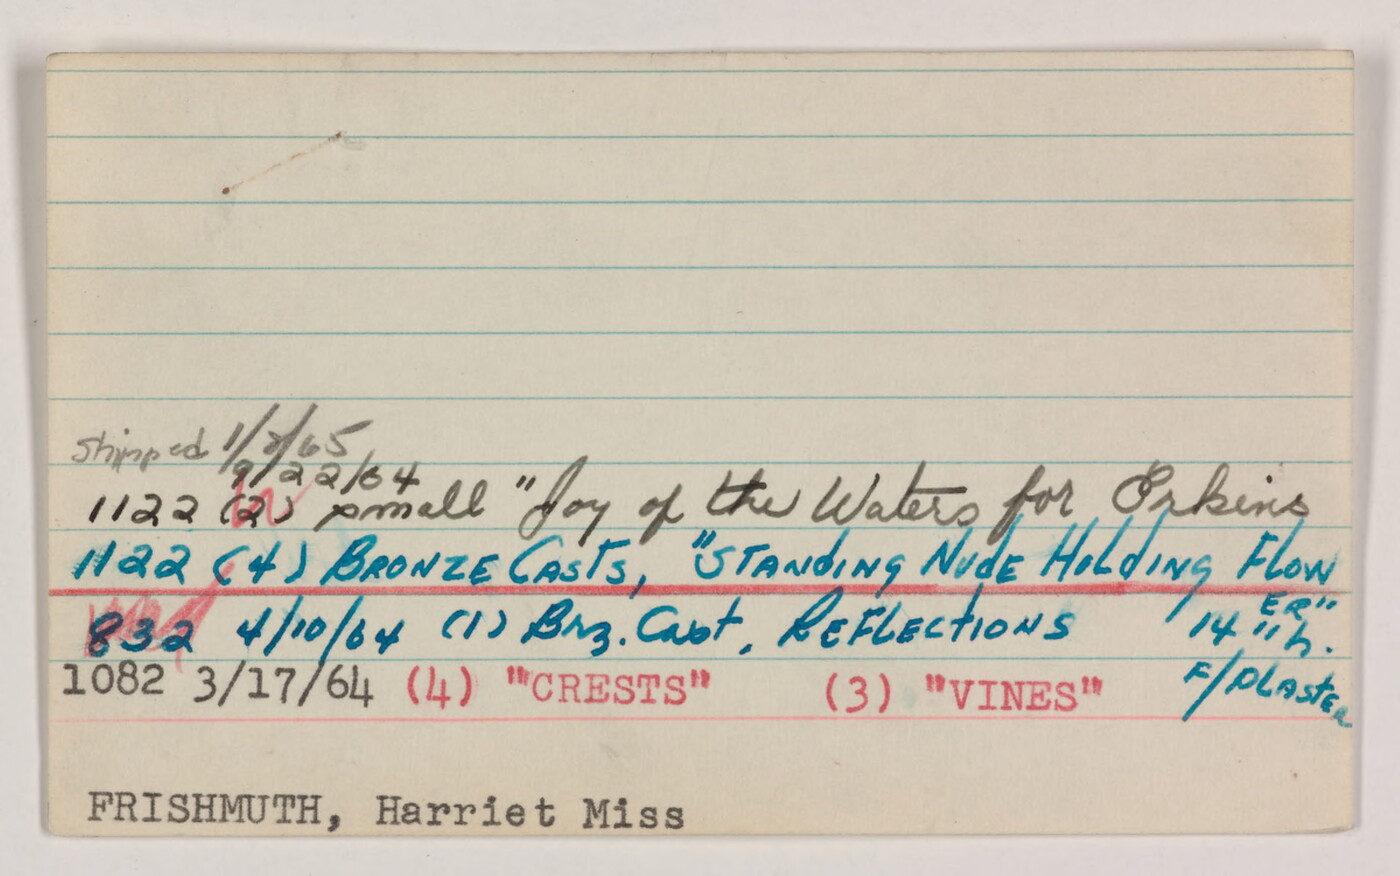 shipped 1/8/65
9/22/64
1122 (2) small "Joy of the Waters for
1122 (4) BRONZE CASTS, "STANDING NUDE HOLDING FLOW
ER"
832 4/10/64 (1) Brz. Cast, REFLECTIONS 14"h.
1082 3/17/64 (4) "CRESTS" (3) "VINES" F/PLASTER
FRISHMUTH, Harriet Miss